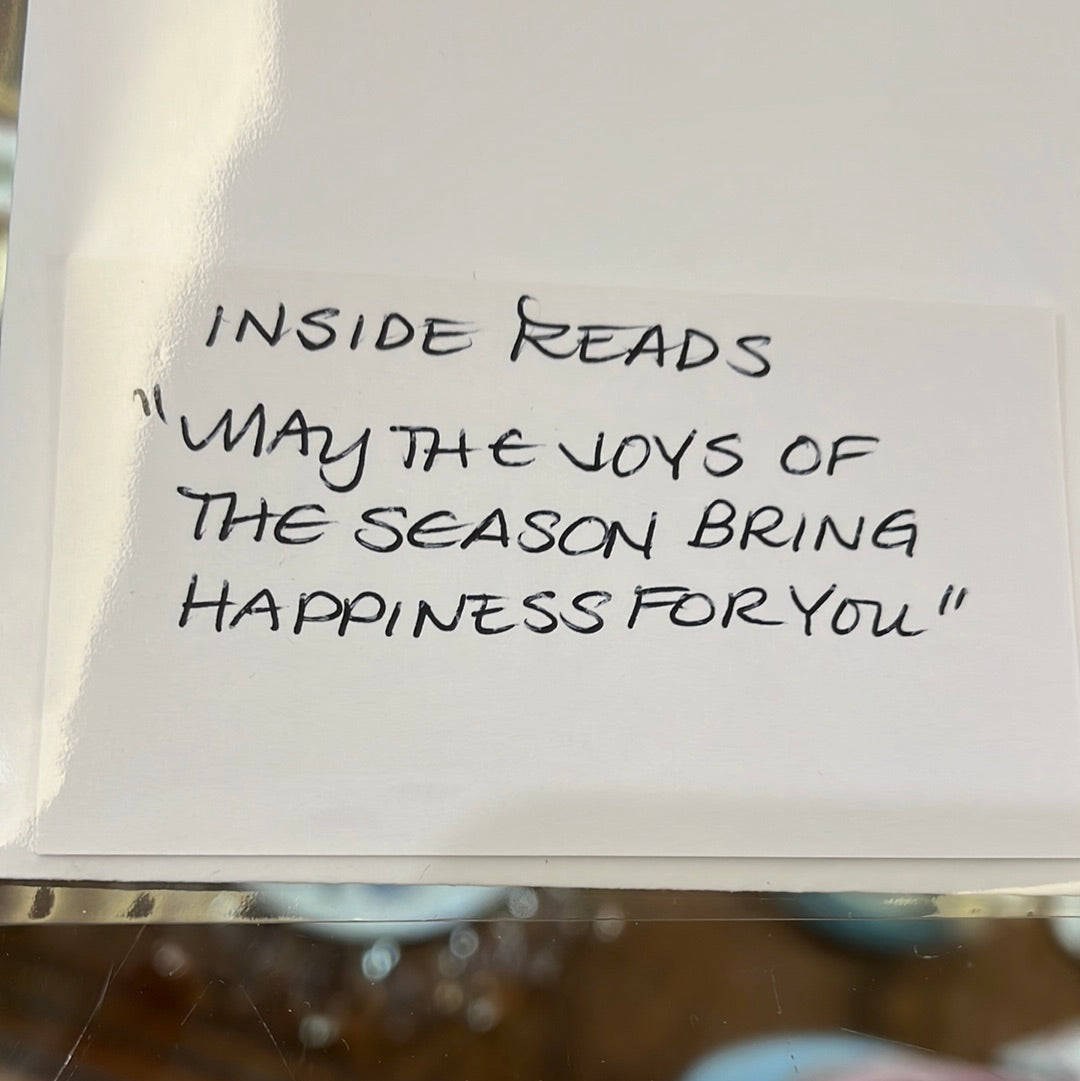 INSIDE READS
"MAY THE JOYS OF
THE SEASON BRING
HAPPINESS FOR YOU"